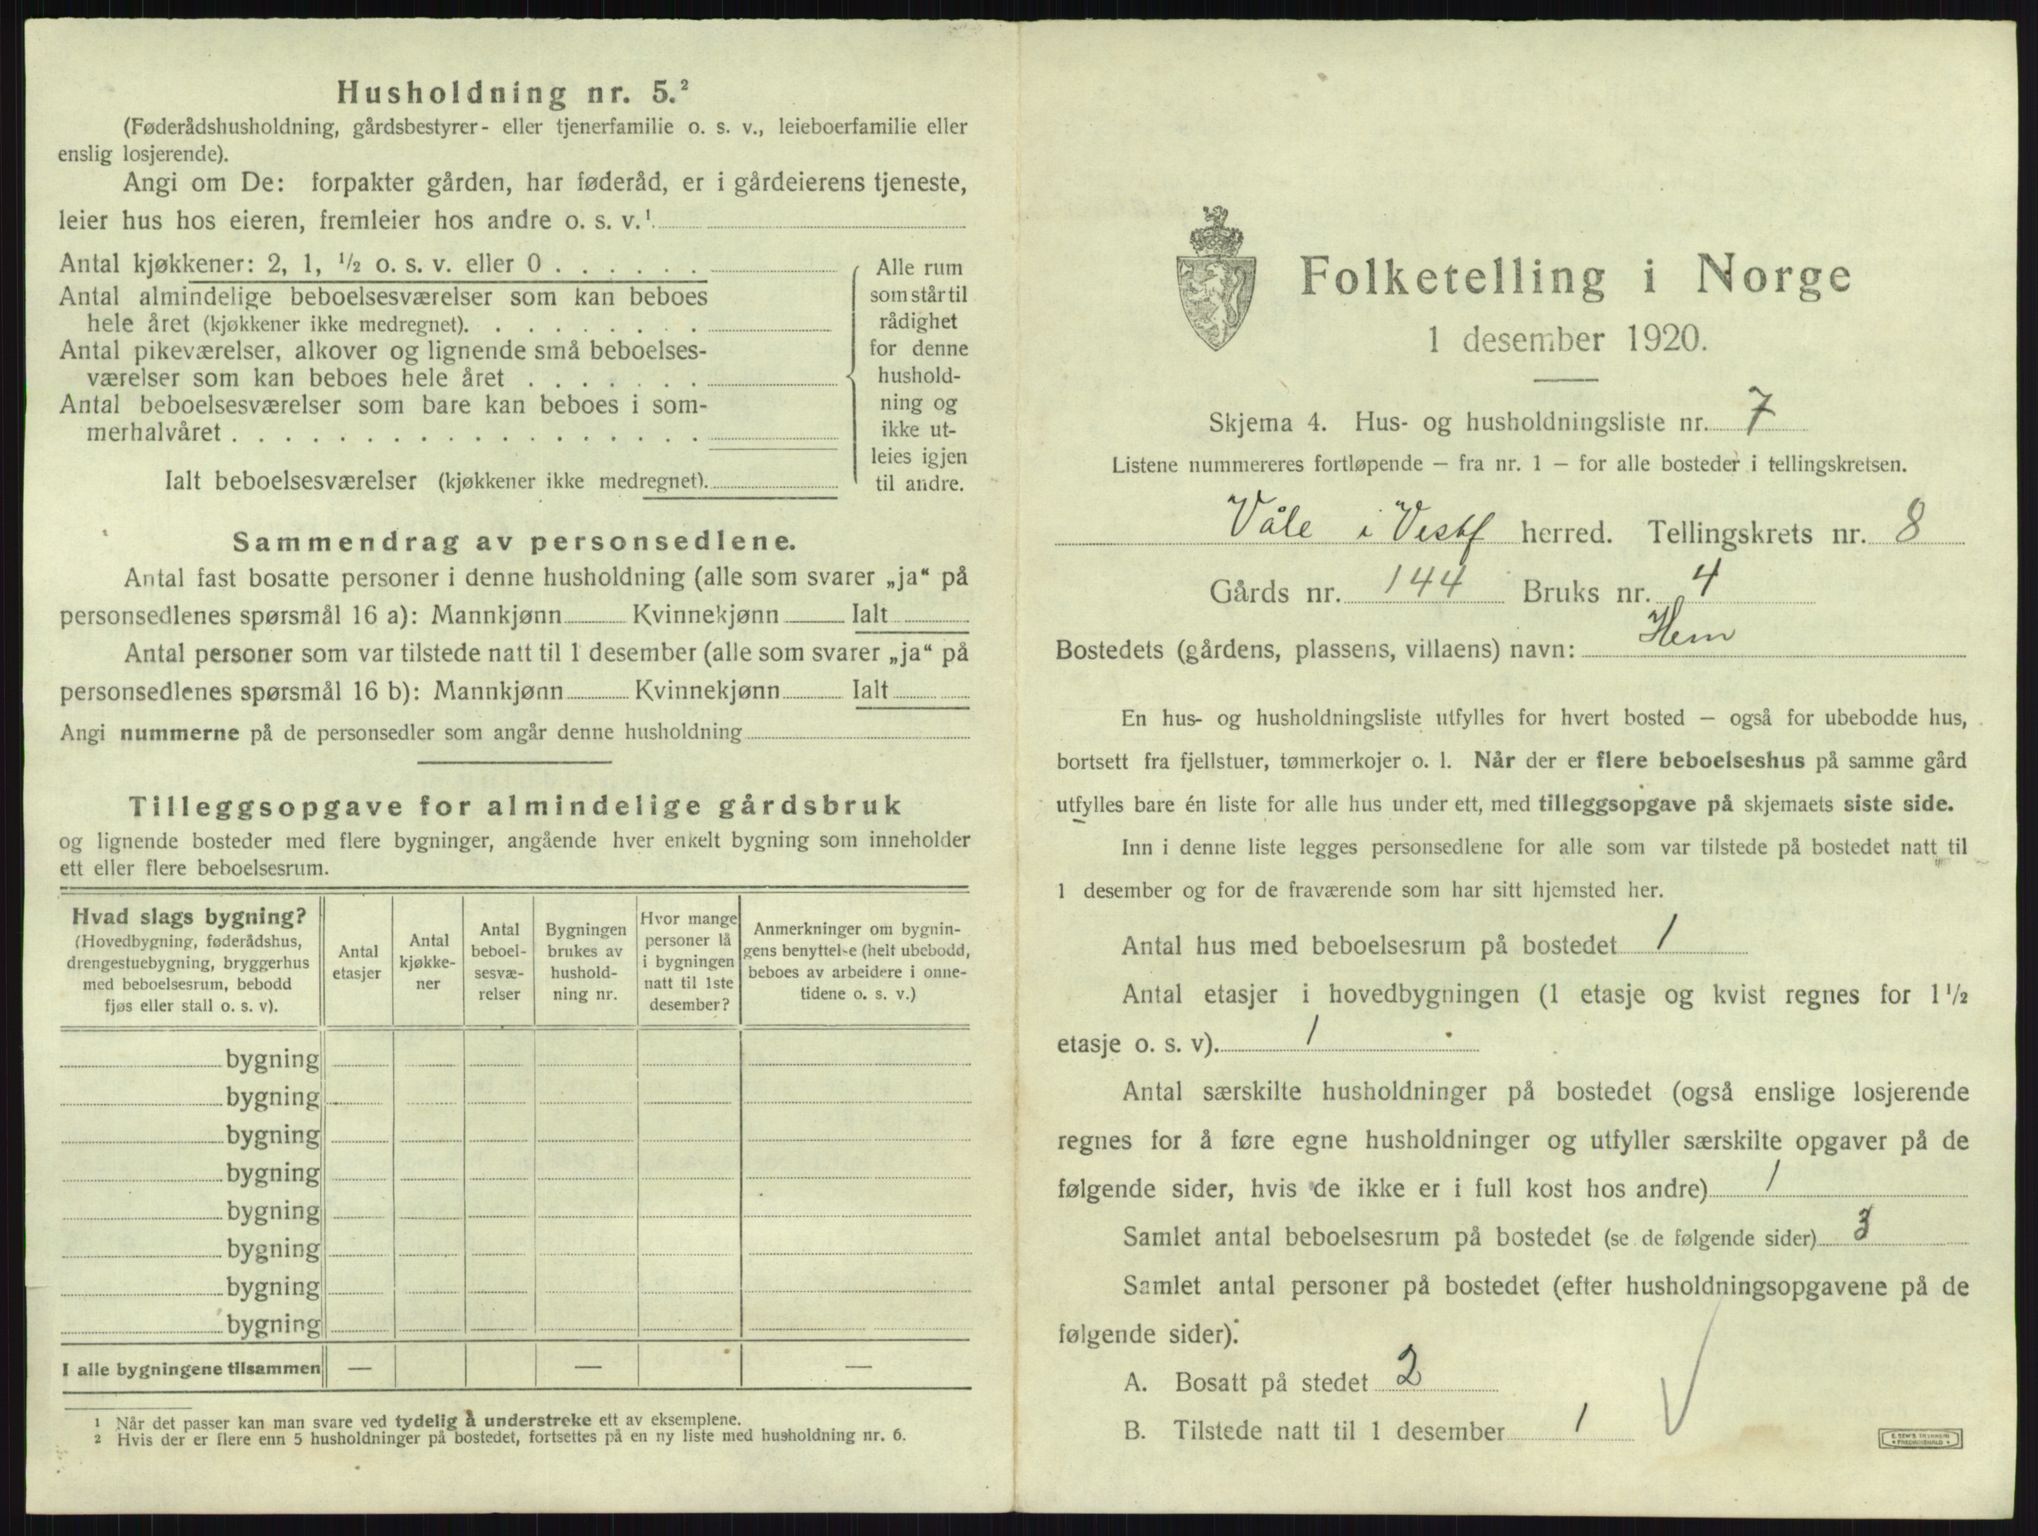 Husholdning nr. 5.²
(Føderådshusholdning, gårdsbestyrer- eller tjenerfamilie o. s. v., leieboerfamilie eller
enslig losjerende).
Angi om De: forpakter gården, har føderåd, er i gårdeierens tjeneste,
leier hus hos eieren, fremleier hos andre o. s. v.¹
Antal kjøkkener: 2, 1, ½ o. s. v. eller 0 . . . . . .
Antal almindelige beboelsesværelser som kan beboes
hele året (kjøkkener ikke medregnet). . . . . . . . .
Antal pikeværelser, alkover og lignende små beboelses-
værelser som kan beboes hele året . . . . . . .
Antal beboelsesværelser som bare kan beboes i som-
merhalvåret . . . . . . . . . . . . . . . . . .
Ialt beboelsesværelser (kjøkkener ikke medregnet).
Alle rum
som står til
rådighet
for denne
hushold-
ning og
ikke ut-
leies igjen
til andre.
Sammendrag av personsedlene.
Antal fast bosatte personer i denne husholdning (alle som svarer „ja“ på
personsedlenes spørsmål 16 a): Mannkjønn Kvinnekjønn Ialt
Antal personer som var tilstede natt til 1 desember (alle som svarer „ja“ på
personsedlenes spørsmål 16 b): Mannkjønn Kvinnekjønn Ialt
Angi nummerne på de personsedler som angår denne husholdning
Tilleggsopgave for almindelige gårdsbruk
og lignende bosteder med flere bygninger, angående hver enkelt bygning som inneholder
ett eller flere beboelsesrum.
Hvad slags bygning?
(Hovedbygning, føderådshus,
drengestuebygning, bryggerhus
med beboelsesrum, bebodd
fjøs eller stall o. s. v).
Antal
etasjer
Antal
kjøkke-
ner
Antal
beboel-
sesvæ-
relser
Bygningen
brukes av
hushold-
ning nr.
Hvor mange
personer lå
i bygningen
natt til 1ste
desember?
Anmerkninger om bygnin-
gens benyttelse (helt ubebodd,
beboes av arbeidere i onne-
tidene o. s. v.)
bygning
bygning
bygning
bygning
bygning
bygning
bygning
bygning
I alle bygningene tilsammen — — —
1 Når det passer kan man svare ved tydelig å understreke ett av eksemplene.
2 Hvis der er flere enn 5 husholdninger på bostedet, fortsettes på en ny liste med husholdning nr. 6.
Folketelling i Norge
1 desember 1920.
Skjema 4. Hus- og husholdningsliste nr. 7
Listene nummereres fortløpende – fra nr. 1 – for alle bosteder i tellingskretsen.
Våle i Vestf herred. Tellingskrets nr. 8
Gårds nr. 144 Bruks nr. 4
Bostedets (gårdens, plassens, villaens) navn: Hem
En hus- og husholdningsliste utfylles for hvert bosted – også for ubebodde hus,
bortsett fra fjellstuer, tømmerkojer o. l. Når der er flere beboelseshus på samme gård
utfylles bare én liste for alle hus under ett, med tilleggsopgave på skjemaets siste side.
Inn i denne liste legges personsedlene for alle som var tilstede på bostedet natt til
1 desember og for de fraværende som har sitt hjemsted her.
Antal hus med beboelsesrum på bostedet 1
Antal etasjer i hovedbygningen (1 etasje og kvist regnes for 1½
etasje o. s. v). 1
Antal særskilte husholdninger på bostedet (også enslige losjerende
regnes for å føre egne husholdninger og utfyller særskilte opgaver på de
følgende sider, hvis de ikke er i full kost hos andre) 1
Samlet antal beboelsesrum på bostedet (se de følgende sider) 3
Samlet antal personer på bostedet (efter husholdningsopgavene på de
følgende sider):
A. Bosatt på stedet 2
B. Tilstede natt til 1 desember 1